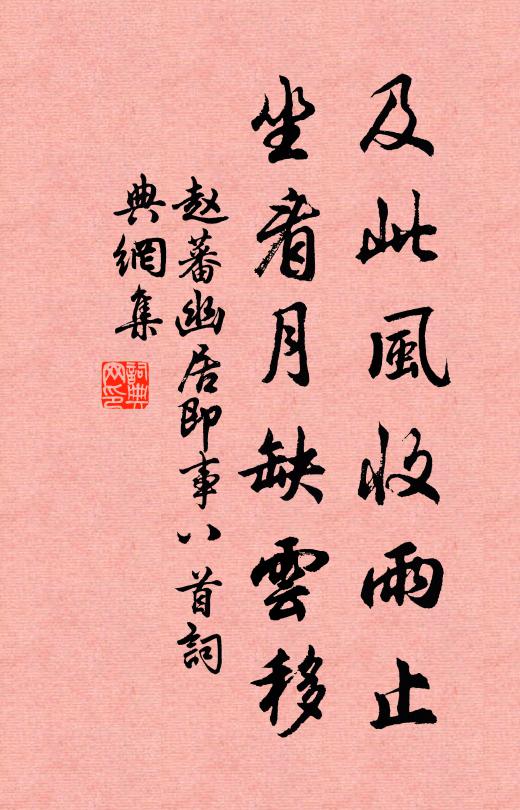 及此風收雨止
坐看月缺雲移
赵蕃幽居即事八首詞
典網集
詞典
网印